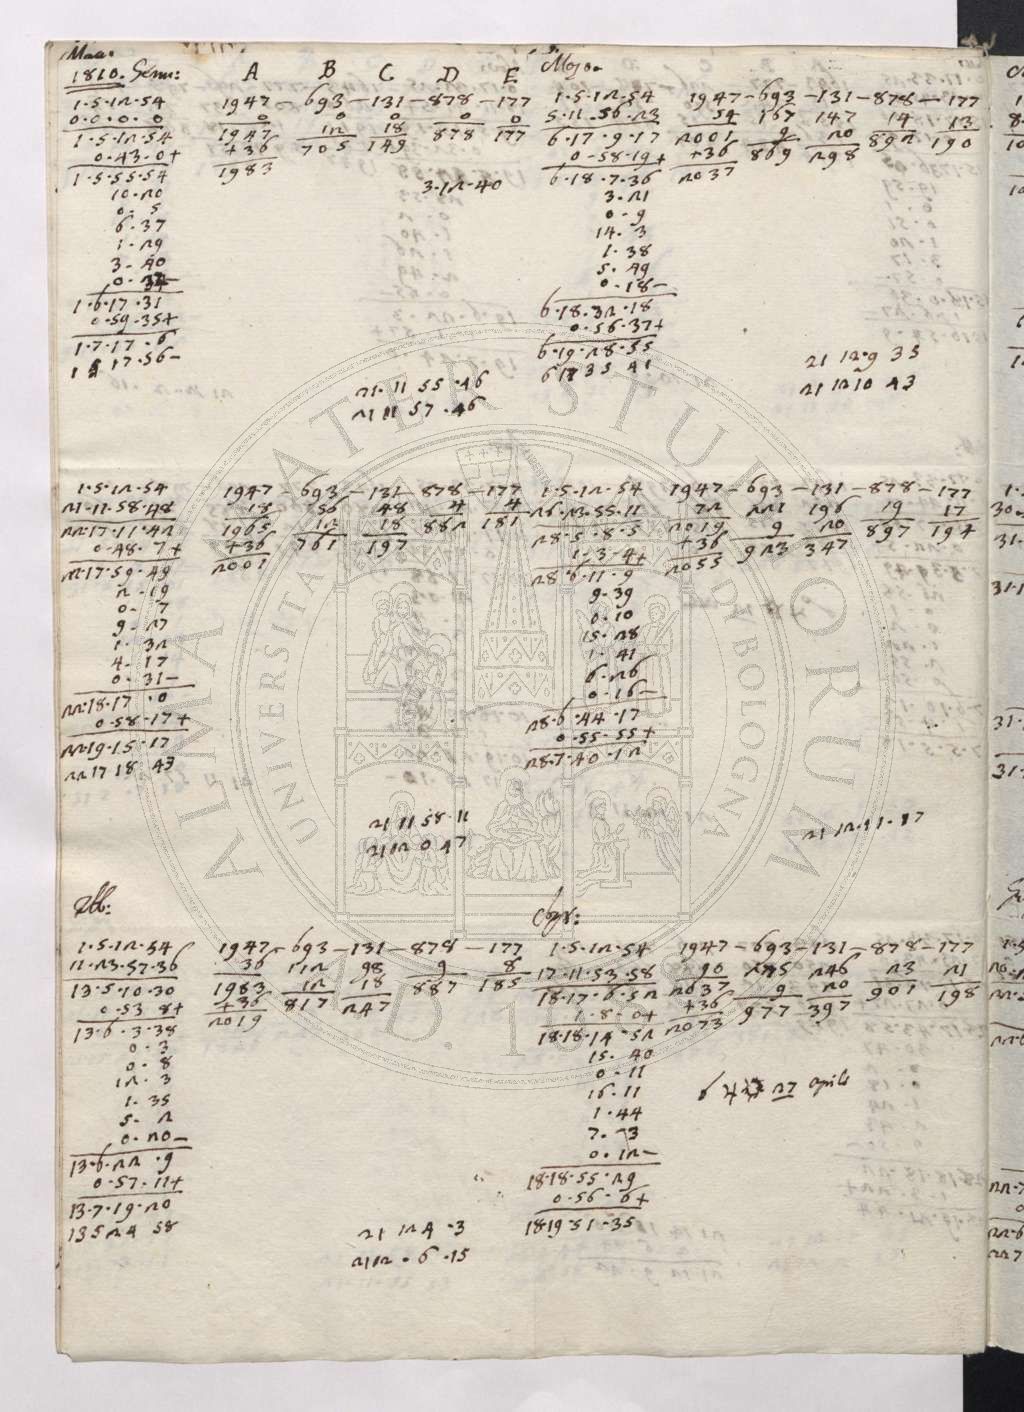 1810. Genn:
A B C D E
1·5·12·54 1947 – 693 – 131 – 878 – 177
0·0·0·0 0 0 0 0 0
1·5·12·54 1947 12 18 878 177
0·43·0+ +36 705 149
1·5·55·54 1983
10·20 3·12·40
0·5
6·37
1·29
3·40
0·34–
1·6·17·31
0·59·35+
1·7·17·6
17·56–
21·11 55·46
21 11 57·46
1·5·12·54 1947 – 693 – 131 – 878 – 177
21·11·58·48 18 56 48 4 4
22·17·11·42 1965 12 18 882 181
0·48·7+ +36 761 197
22·17·59·49 2001
2·19
0·7
9·27
1·32
4·17
0·31–
22·18·17·0
0·58·17+
22·19·15·17
22 17 18 43
21 11 58·11
21 12 0 47
1·5·12·54 1947 – 693 – 131 – 878 – 177
11·23·57·36 36 112 98 9 8
13·5·10·30 1983 12 18 887 185
0·53 8+ +36 817 247
13·6·3·38 2019
0·3
0·8
12·3
1·35
5·2
0·20–
13·6·22·9
0·57·11+
13·7·19·20
13 5 24 58
21 12 4·3
21 12·6·15
1·5·12·54 1947 – 693 – 131 – 878 – 177
5·11·56·23 54 167 147 14 13
6·17·9·17 2001 9 20 892 190
0·58·19+ +36 869 298
6·18·7·36 2037
3·21
0·9
14·3
1·38
5·49
0·18–
6·18·32·18
0·56·37+
6·19·28·55
6 18 35 41
21 12·9 35
21 12 10 43
1·5·12·54 1947 – 693 – 131 – 878 – 177
26·23·55·11 72 221 196 19 17
28·5·8·5 2019 9 20 897 194
1·3·4+ +36 923 347
28·6·11·9 2055
9·39
0·10
15·28
1·41
6·26
0·16–
28·6·44·17
0·55·55+
28·7·40·12
21 12·11·17
1·5·12·54 1947 – 693 – 131 – 878 – 177
17·11·53·58 90 275 246 23 21
18·17·6·52 2037 9 20 901 198
1·8·0+ +36 977 397
18·18·14·52 2073
15·40
0·11
16·11 27 Aprile
1·44
7·3
0·12–
18·18·55·29
0·56·6+
18 19·51·35